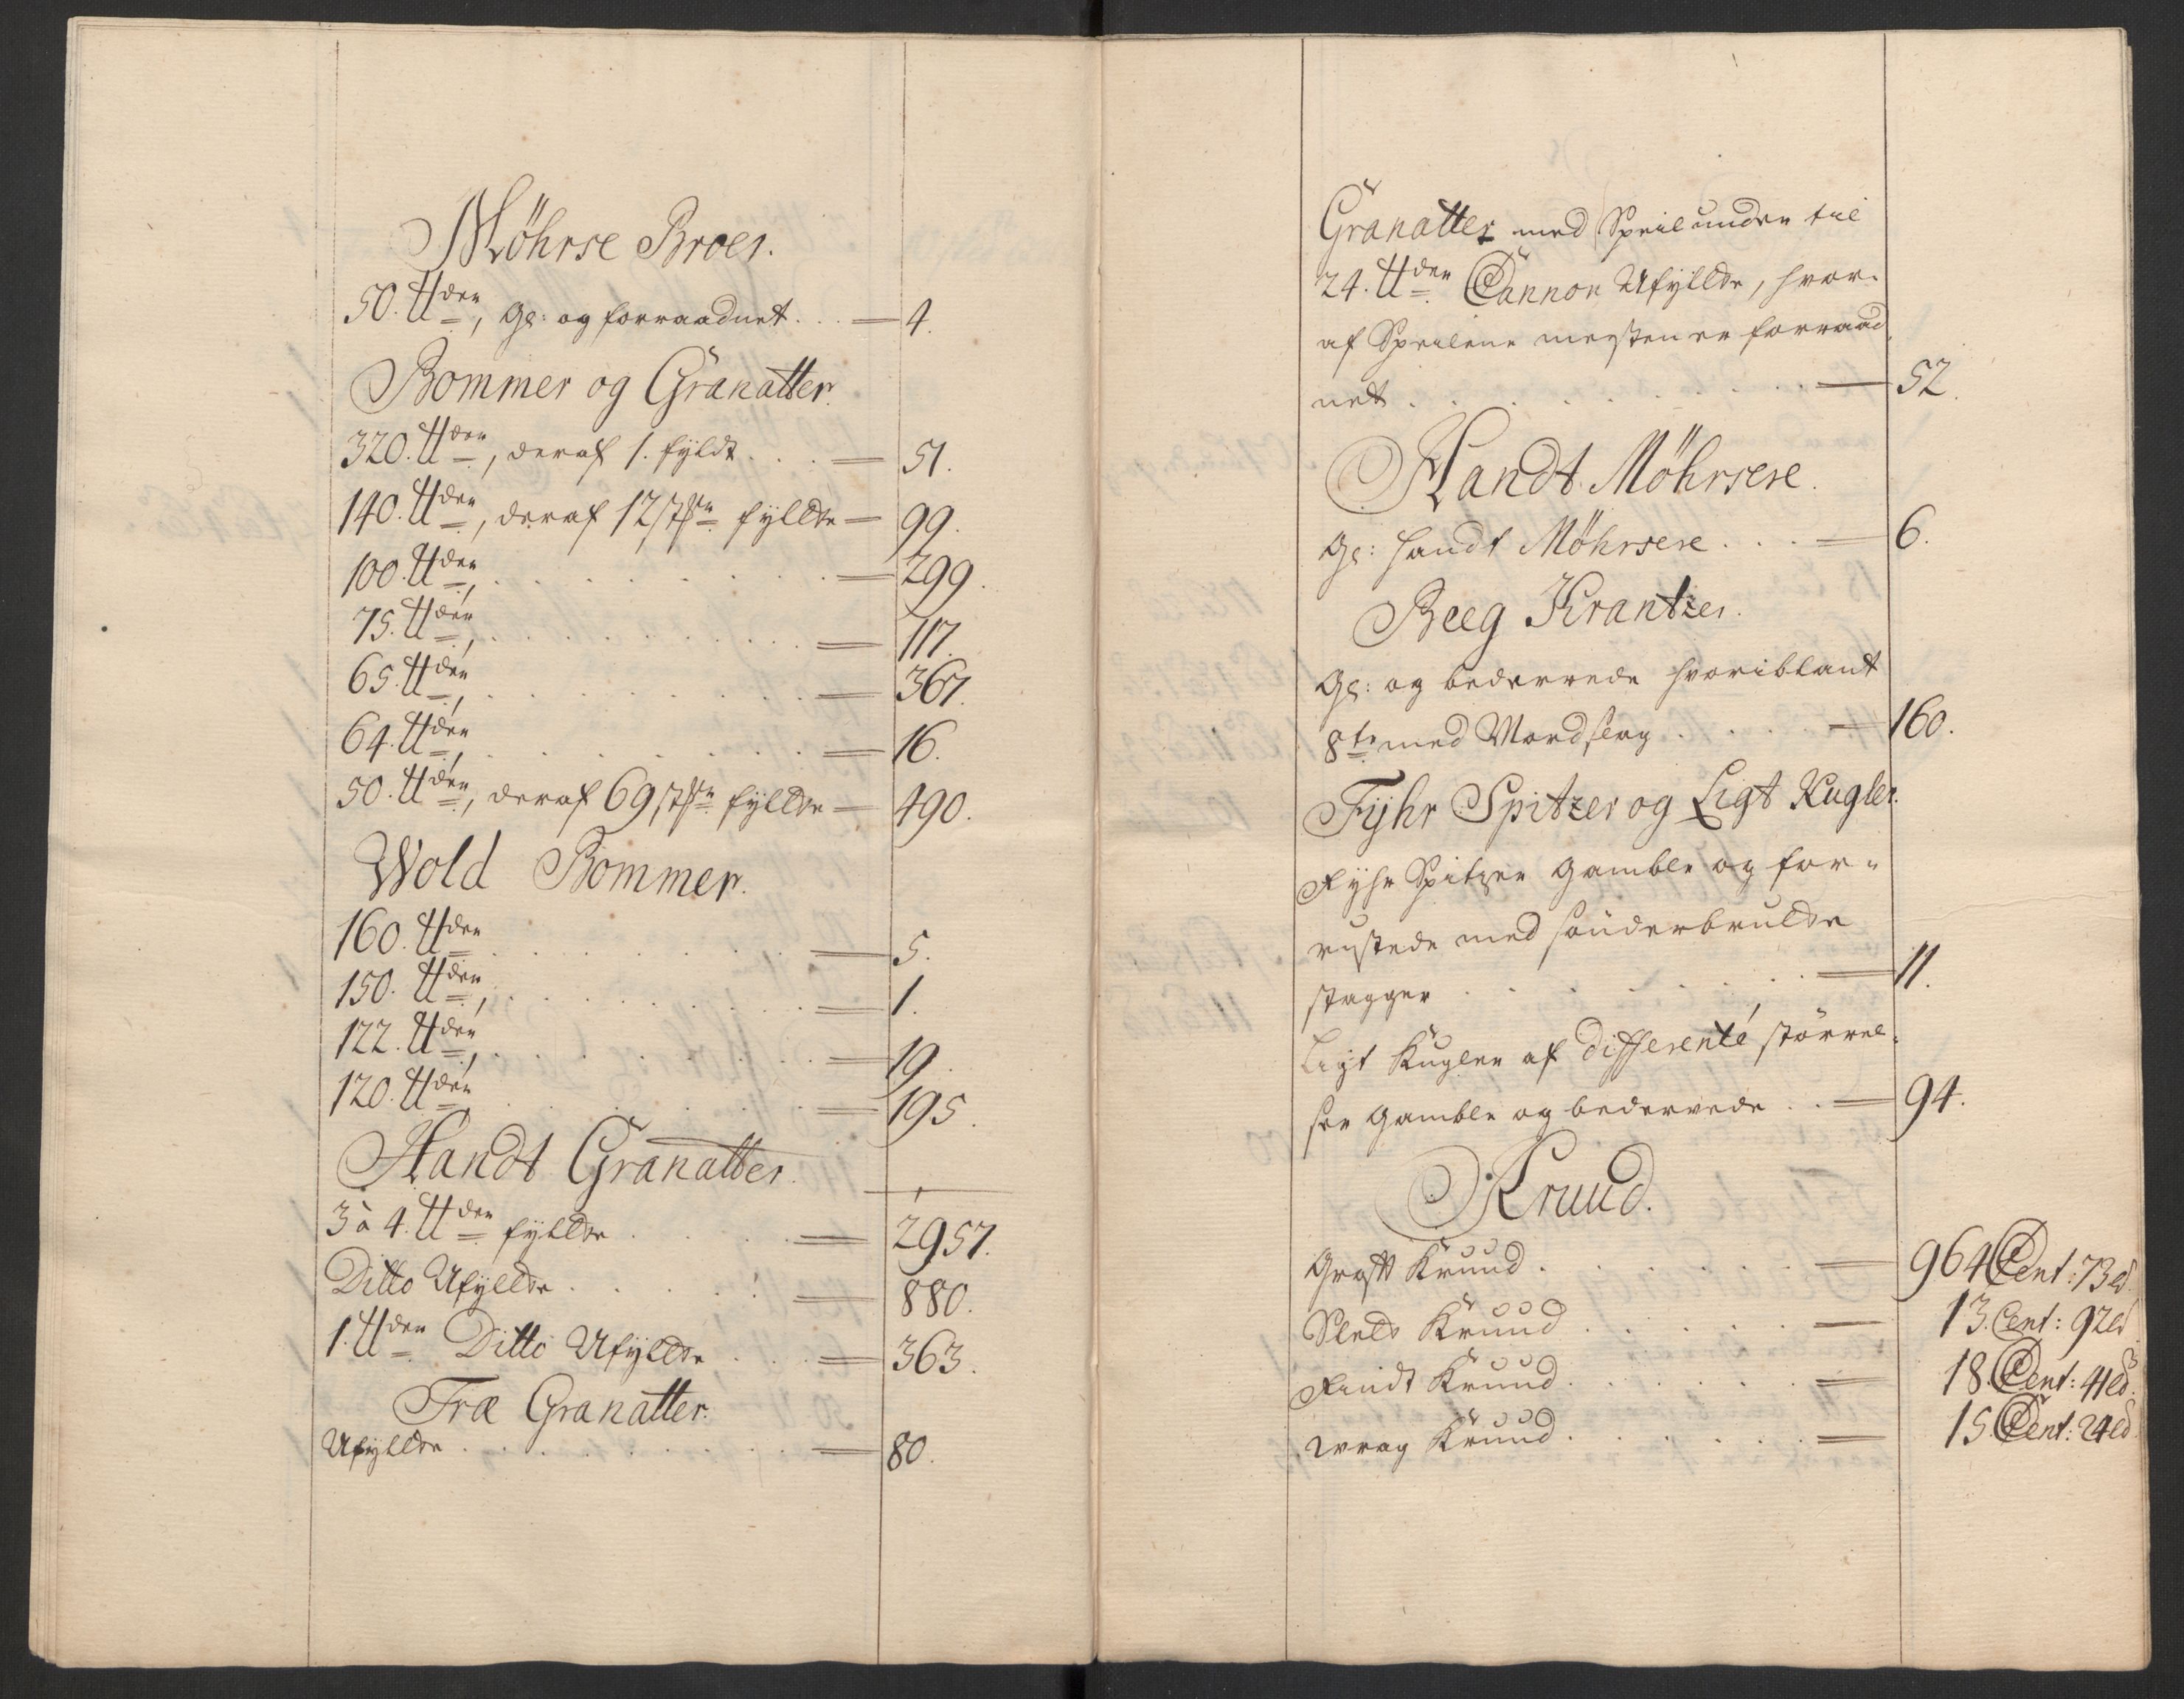 Möhrse Broer.
50. ℔den, Gl: og forraadnet . . . — 4.
Bommer og Granatter.
320. ℔den, deraf 1. fyldt . . . — 51.
140. ℔den, deraf 12 fyldte — 99.
100. ℔den, . . . — 299.
75. ℔den, . . . — 117.
65. ℔den, . . . — 367.
64. ℔den, . . . — 16.
50. ℔den, deraf 69 fyldte — 490.
Wold Bommer.
160. ℔den . . . — 5.
150. ℔den, . . . — 1.
122. ℔den, . . . — 19.
120. ℔den . . . — 195.
Handt Granatter.
3 à 4. ℔den fyldte . . . — 2957.
Ditto Ufyldte . . . — 880.
1. ℔den Ditto Ufyldte . . . — 363.
Træ Granatter.
Ufyldte . . . — 80.
Granatter med Speil under til
24. ℔den Cannon Ufyldte, hvor-
af Speilene mesten er forraad
net . . . — 52.
Handt Möhrsere.
Gl: Handt Möhrsere . . . — 6.
Beeg Krantzer.
Gl: og bedervede hvoriblant
8te med Mordslag . . . — 160.
Fyhr Spitzer og Ligt Kugler.
Fyhr Spitzer Gamble og for-
rustede med sönderbrulte
stagger . . . — 11.
Ligt Kugler af differente störrel-
ser Gamble og bedervede . . — 94.
Kruud.
Groft Kruud . . . — 964 Cent: 73 ℔.
Slet Kruud . . . — 13. Cent: 92 ℔
Fiint Kruud . . . — 18. Cent: 41 ℔.
Wrag Kruud . . . — 15. Cent: 24 ℔.